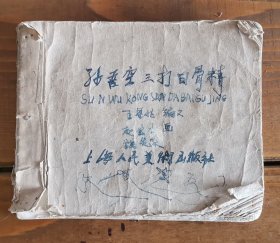 孙吾空三打白骨精
SUNWUKONGSANDABAIGUJING
王星北 编文
赵宏本 画
钱笑呆
上海人民美術出版社